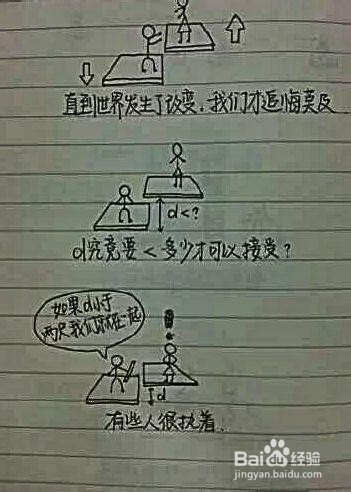 直到世界发生了改变，我们才追悔莫及
d<?
d究竟要<多少才可以接受？
如果d小于
两尺我们就在一起
d
有些人很执着.
Baidu经验
jingyan.baidu.com